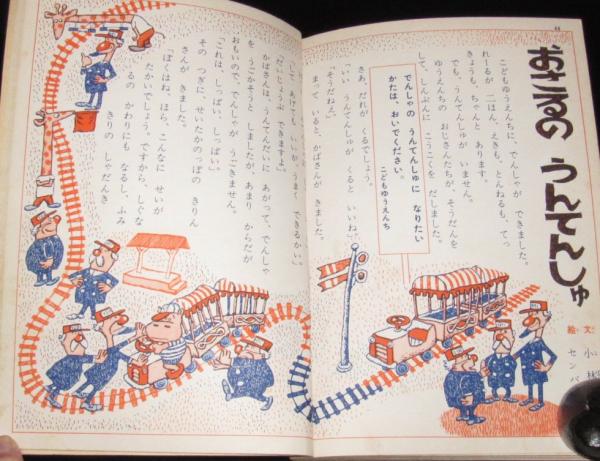 44
おさるの うんてんしゅ
文 小林
絵 センバ
こどもゆうえんちに、でんしゃが できました。
れーるが 二ほん、えきも、とんねるも、てっ
きょうも、ちゃんと あります。
でも、うんてんしゅが いません。
ゆうえんちの おじさんたちが、そうだんを
して、しんぶんに こうこくを だしました。
でんしゃの うんてんしゅに なりたい
かたは、おいでください。
こどもゆうえんち
さあ だれが くるでしょう。
「いい うんてんしゅが くると いいね。」
「そうだねえ。」
まって いると、かばさんが きました。
「して あげても いいが、うまく できるかい。」
「だいじょうぶ できますよ。」
かばさんは、うんてんだいに あがって、でんしゃ
を うごかそうと しましたが、あまり からだが
おもいので、でんしゃが うごきません。
「これは しっぱい、しっぱい。」
その つぎに、せいたかのっぽの きりん
さんが きました。
「ぼくはね、ほら、こんなに せいが
たかいでしょう。ですから、しぐな
るの かわりにも なるし、ふみ
きりの しゃだんき